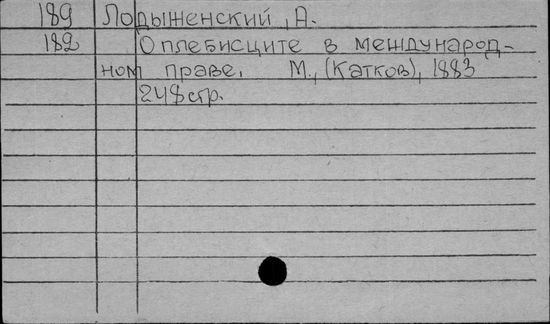 189 Лодыженский, А.
182 О плебисците в международ-
ном праве. М., (Катков), 1883
248 стр.